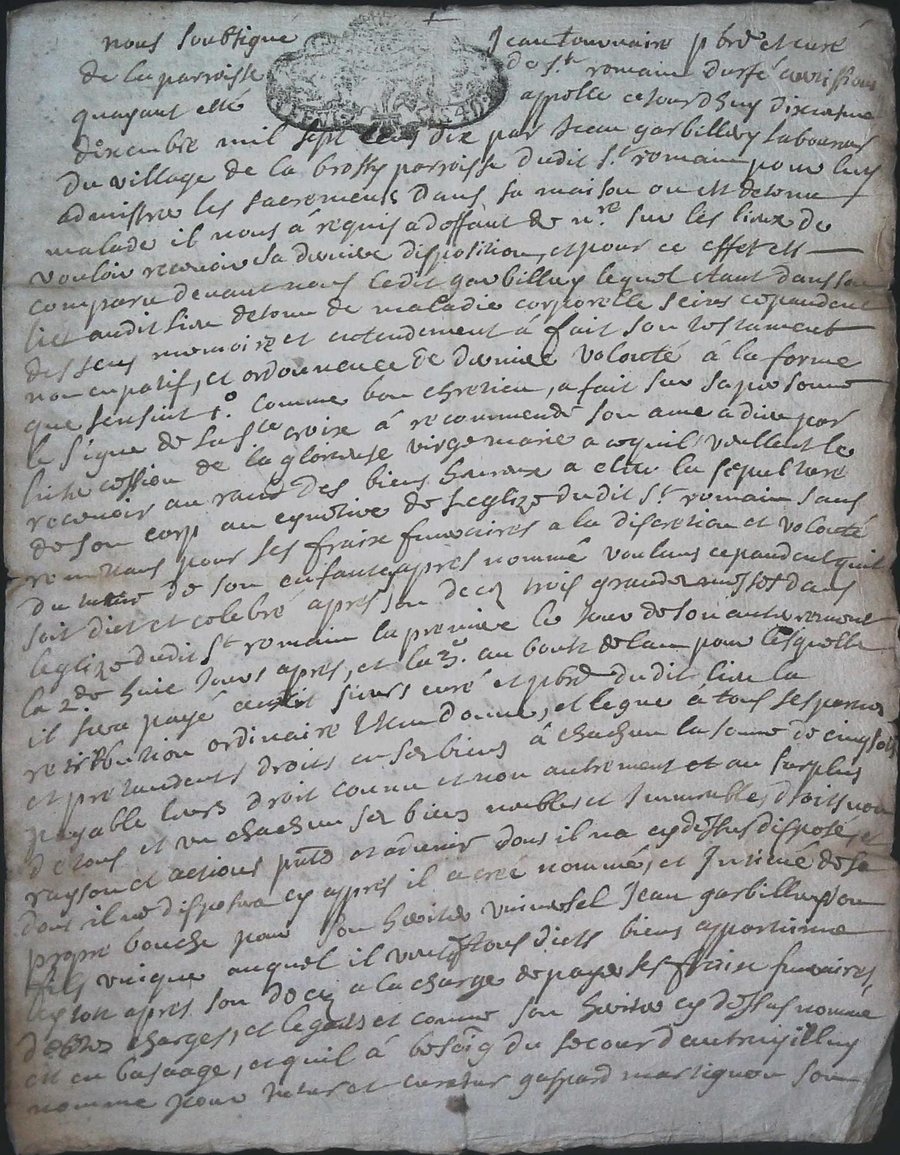 nous soubsigné Jean touvnaire pbre et curé
de la parroisse de St romain durfé certiffions
quayant esté appelle ce jourdhuy dixiesme
dixembre mil sept cens dix par Jean garbilley laboureur
du village de la brosse parroisse dudit St romain pour luy
admistre les sacrements dans sa maison ou est detenu
malade il nous á requis a deffaut de nre sur les lieux de
vouloir recevoir sa derniere disposition, et pour ce effet est
comparu devant nous ledit garbilley lequel etant dans son
lict audit lieu detenu de maladie corporelle seins cepandent
des sens memoire et entendement á fait son testament
noncupatif, et ordonnence de derniere volonté á la forme
que sensuit 1o comme bon chretien, a fait sur sa personne
le signe de la ste croix á recommendé son ame a dieu par
lintercession de la glorieuse virge marie a ce quil veullent le
recevoir au rang des biens heureux a elleu la sepulture
de son corp au cymetiere de leglize dudit St romain sans
remettant pour ses fraix funeraires a la discretion et volonté
du tuteur de son enfant cy apres nommé voulant cepandent quil
soit dict et celebré apres son decez trois grandes messes dans
leglize dudit St romain la premiere le jour de son anterrement
la 2e de huit jours apres, et la 3e au bout de lan pour lesquelle
il sera payé audit sieurs curé et pbre dudit lieu la
retribution ordinaire Item donne, et legue á tous ses parens
et pretandents droits en ses biens á chachun la some de cinq sols
payable leurs droit connu et non autrement et au surplus
de tous et un chachun ses biens meubles et Immeubles, droits nom
rayson et actions pnts et advenir dons il na cy dessus disposé, et
dons il ne disposera cy appres il a creé nommé, et Intimé de sa
propre bouche pour son heritier universel Jean garbilley son
fils unique auquel il veut q tous dicts biens appartienne
tost apres son decez a la charge de payer ses fraix funeraires,
debtes charges, et legats et comme son heritier cy dessus nomme
est en bas aage, et quil á besoig du secour dautruy il luy
nomme pour tuteur et curateur gaspard martignon son